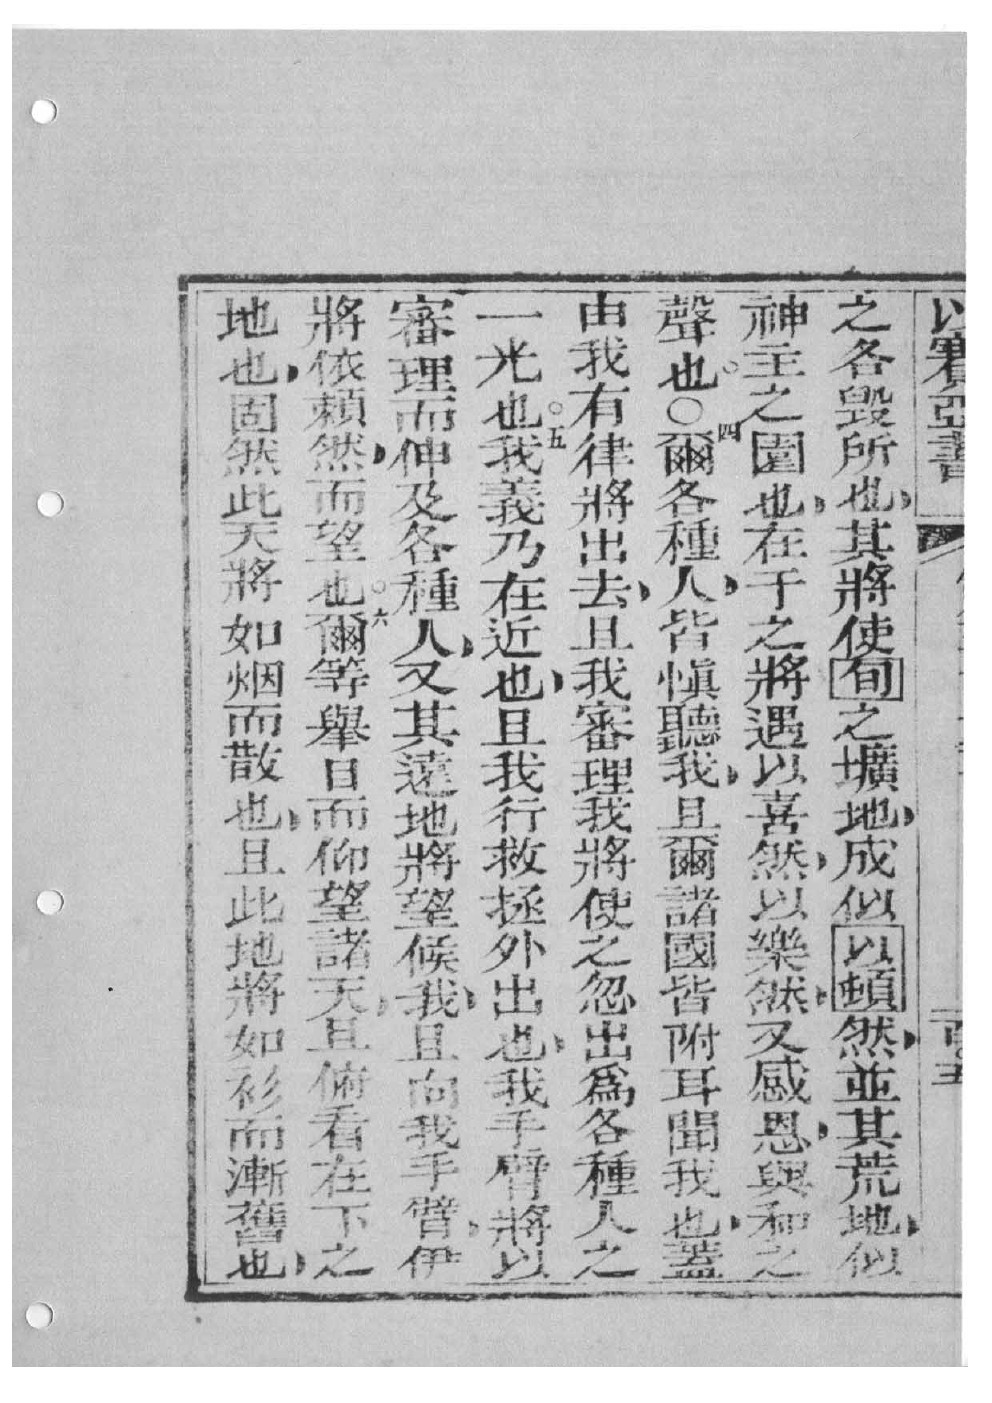 以賽亞書
之各毀所也其將使旬之壙地成似以頓然並其荒地似
神主之園也在于之將遇以喜然以樂然又感恩與和之
聲也○四爾各種人皆慎聽我且爾諸國皆附耳聞我也蓋
由我有律將出去且我審理我將使之忽出爲各種人之
一光也○五我義乃在近也且我行救拯外出也我手臂將以
審理而伸及各種人又其遠地將望候我且向我手臂伊
將依賴然而望也○六爾等舉目而仰望諸天且俯看在下之
地也固然此天將如烟而散也且此地將如衫而漸舊也